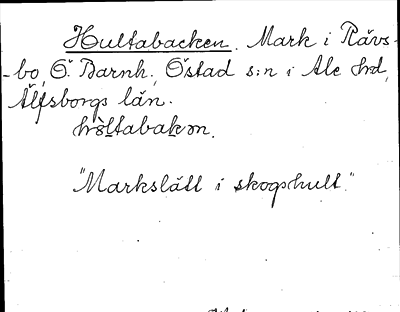 Hultabacken. Mark i Rävs-
-bo, Ö. Barnh., Östad s:n i Ale hd,
Älfsborgs län.
hòltabakən.
"Markslätt i skogshult."